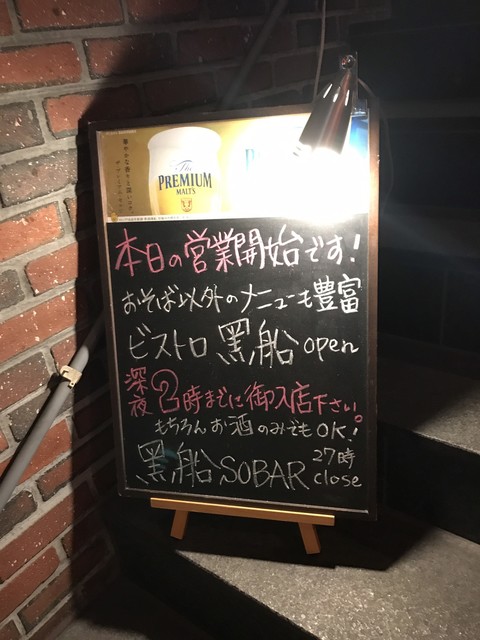 華やかな香りと深いコク。
ザ・プレミアム・モルツ
The
PREMIUM
MALT'S
本日の営業開始です!
おそば以外のメニューも豊富
ビストロ 黒船 open
深夜2時までに御入店下さい。
もちろんお酒のみでもOK!
黒船 SOBAR 27時 close